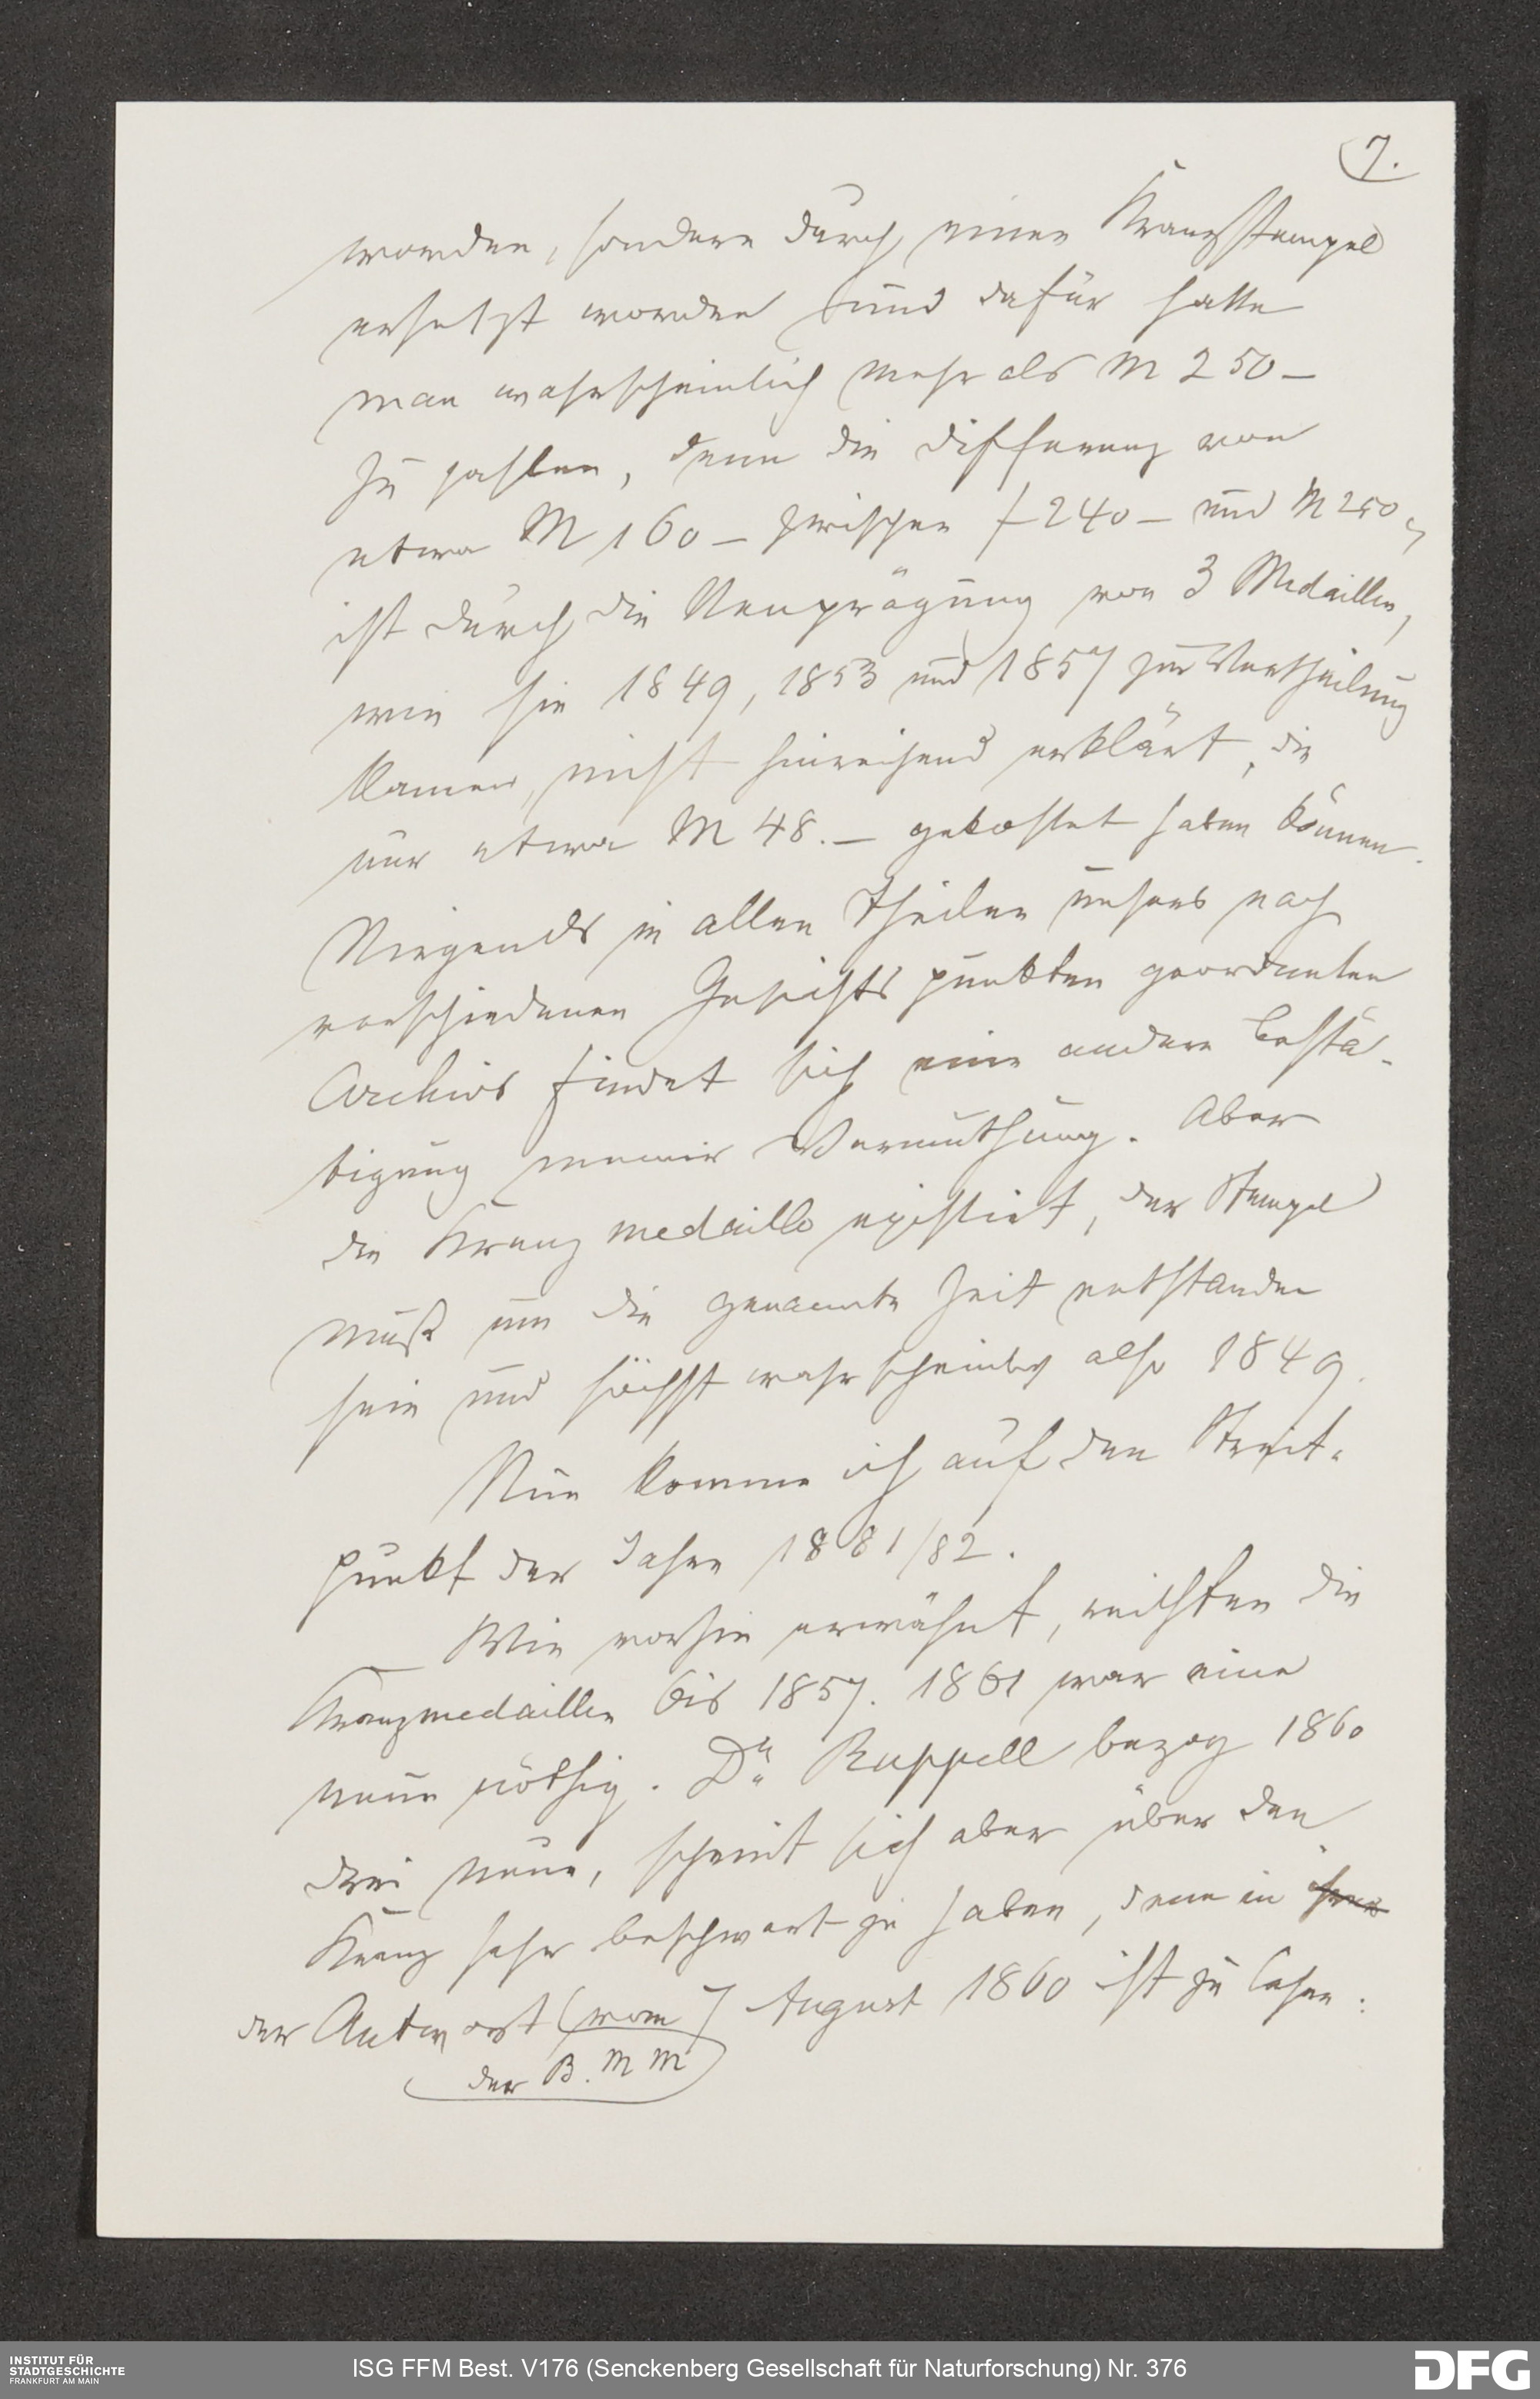 7.
worden, sondern durch einen Kranzstempel
ersetzt worden und dafür hatte
man wahrscheinlich mehr als M 250 –
zu zahlen, denn die Differenz von
etwa M 160 – zwischen f 240 – und M 250,
ist durch die Neuprägung von 3 Medaillen,
wie sie 1849, 1853 und 1857 zur Vertheilung
kamen, nicht hinreichend erklärt, die
nur etwa M 48. – gekostet haben können.
Nirgends in allen Theilen unsers nach
verschiedenen Gesichtspunkten geordneten
Archivs findet sich eine andere Bestä-
tigung meiner Vermuthung. Aber
die Kranzmedaille existirt, der Stempel
muß um die genannte Zeit entstanden
sein und höchst wahrscheinlich also 1849.
Nun komme ich auf den Streit-
punkt der Jahre 1881/82.
Wie vorhin erwähnt, reichten die
Kranzmedaillen bis 1857. 1861 war eine
neue nöthig. Dr Ruppell bezog 1860
drei neue, scheint sich aber über den
Kranz sehr beschwert zu haben, denn in ihrer
der Antwort (vom 7 August 1860 ist zu lesen:
der B. M M
INSTITUT FÜR
STADTGESCHICHTE
FRANKFURT AM MAIN
ISG FFM Best. V176 (Senckenberg Gesellschaft für Naturforschung) Nr. 376
DFG